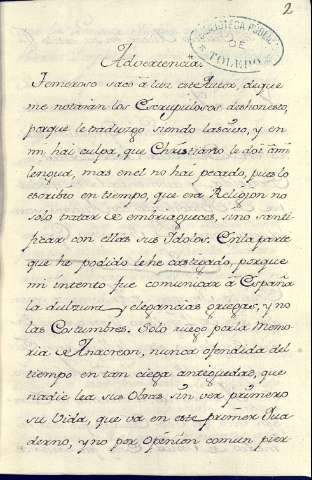 2
BIBLIOTECA PUBLICA
DE
TOLEDO
Advertencia.
Temeroso saco â luz este Autor, de que
me notaràn los Escrupulosos deshonesto,
porque le traduzgo siendo lascivo, y en
mi hai culpa, que Christiano le doi à mi
lengua, mas en el no hai pecado, pues lo
escribio en tiempo, que era Religion no
solo tratar de embriagueces, sino santi-
ficar con ellas sus Idolos. En la parte
que he podido le he castigado, porque
mi intento fue comunicar à España
la dulzura y elegancias griegas, y no
las Costumbres. Solo ruego por la Memo-
ria de Anacreon, nunca ofendida del
tiempo en tan ciega antiguedad, que
nadie lea sus Obras sin ver primero
su Vida, que va en este primer Qua-
derno, y no por opinion comun pier